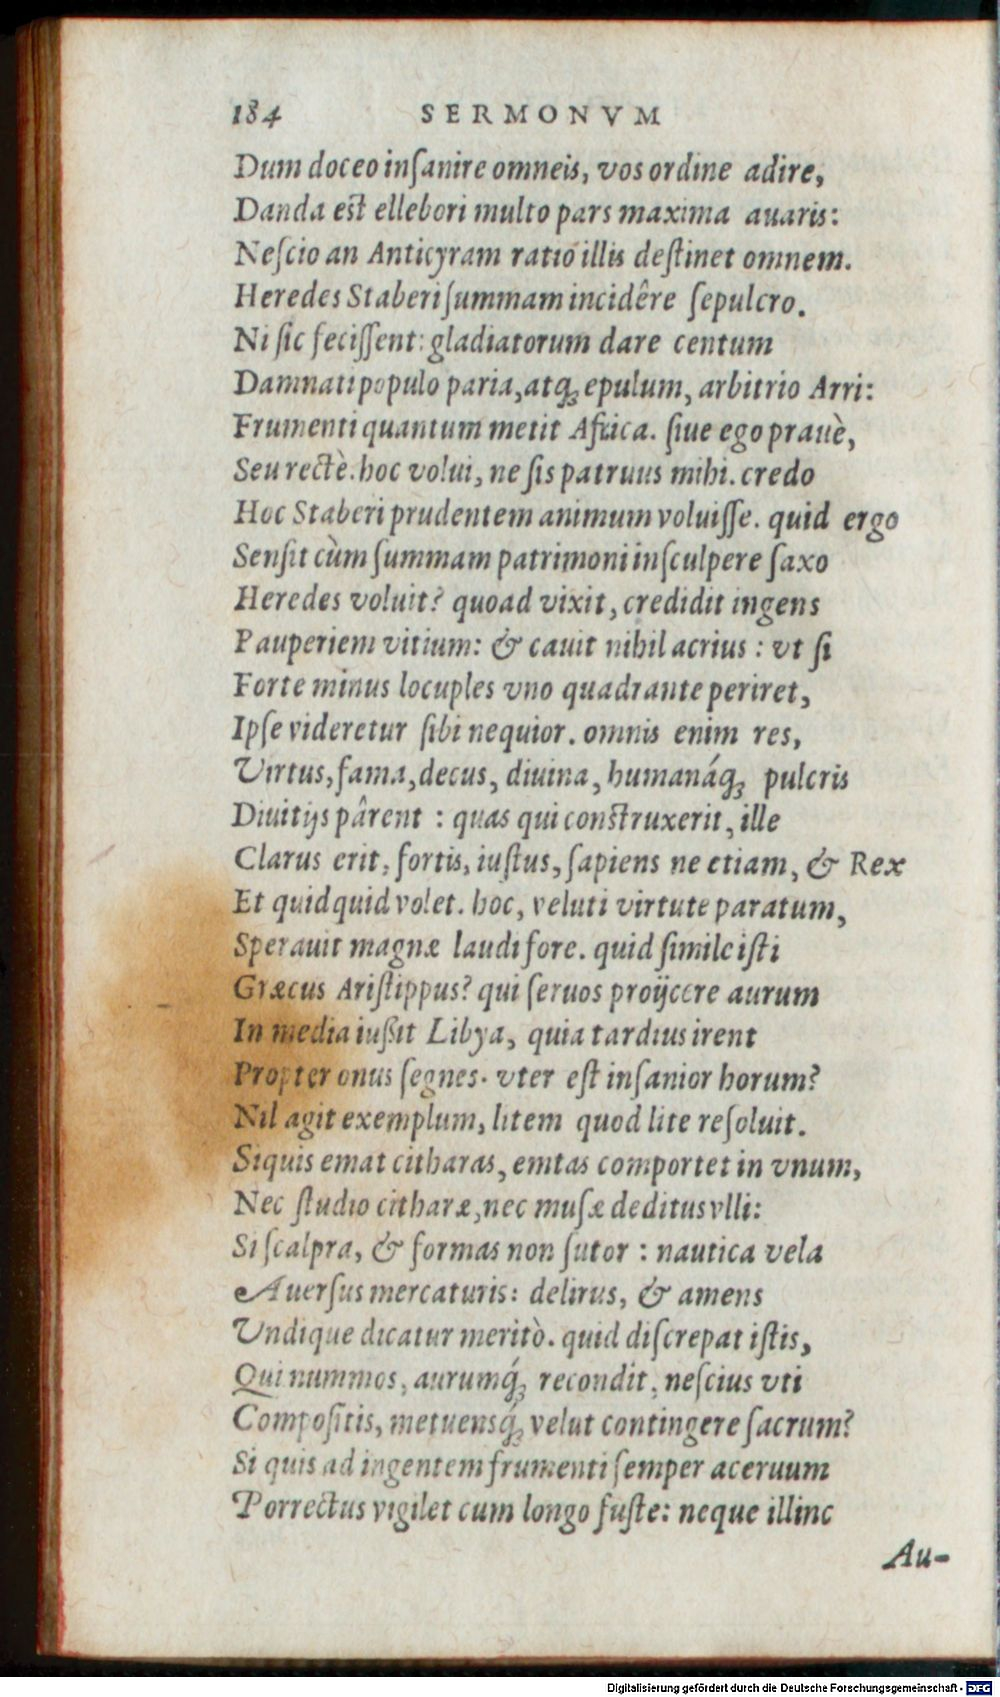 184 SERMONVM
Dum doceo inſanire omneis, vos ordine adire,
Danda eſt ellebori multo pars maxima auaris:
Neſcio an Anticyram ratio illis deſtinet omnem.
Heredes Staberi ſummam incidêre ſepulcro.
Ni ſic feciſſent: gladiatorum dare centum
Damnati populo paria, atq; epulum, arbitrio Arri:
Frumenti quantum metit Africa. ſiue ego prauè,
Seu rectè. hoc volui, ne ſis patruus mihi. credo
Hoc Staberi prudentem animum voluiſſe. quid ergo
Senſit cùm ſummam patrimoni inſculpere ſaxo
Heredes voluit? quoad vixit, credidit ingens
Pauperiem vitium: & cauit nihil acrius: vt ſi
Forte minus locuples vno quadrante periret,
Ipſe videretur ſibi nequior. omnis enim res,
Virtus, fama, decus, diuina, humanáq; pulcris
Diuitijs pârent : quas qui conſtruxerit, ille
Clarus erit, fortis, iuſtus, ſapiens ne etiam, & Rex
Et quidquid volet. hoc, veluti virtute paratum,
Sperauit magnæ laudi fore. quid ſimile iſti
Græcus Ariſtippus? qui ſeruos proijcere aurum
In media iußit Libya, quia tardius irent
Propter onus ſegnes. vter eſt inſanior horum?
Nil agit exemplum, litem quod lite reſoluit.
Siquis emat citharas, emtas comportet in vnum,
Nec ſtudio citharæ, nec muſæ deditus vlli:
Si ſcalpra, & formas non ſutor : nautica vela
Auerſus mercaturis: delirus, & amens
Undique dicatur meritò. quid diſcrepat iſtis,
Qui nummos, aurumq́; recondit, neſcius vti
Compoſitis, metuensq́; velut contingere ſacrum?
Si quis ad ingentem frumenti ſemper aceruum
Porrectus vigilet cum longo fuſte: neque illinc
Au-
Digitalisierung gefördert durch die Deutsche Forschungsgemeinschaft - DFG